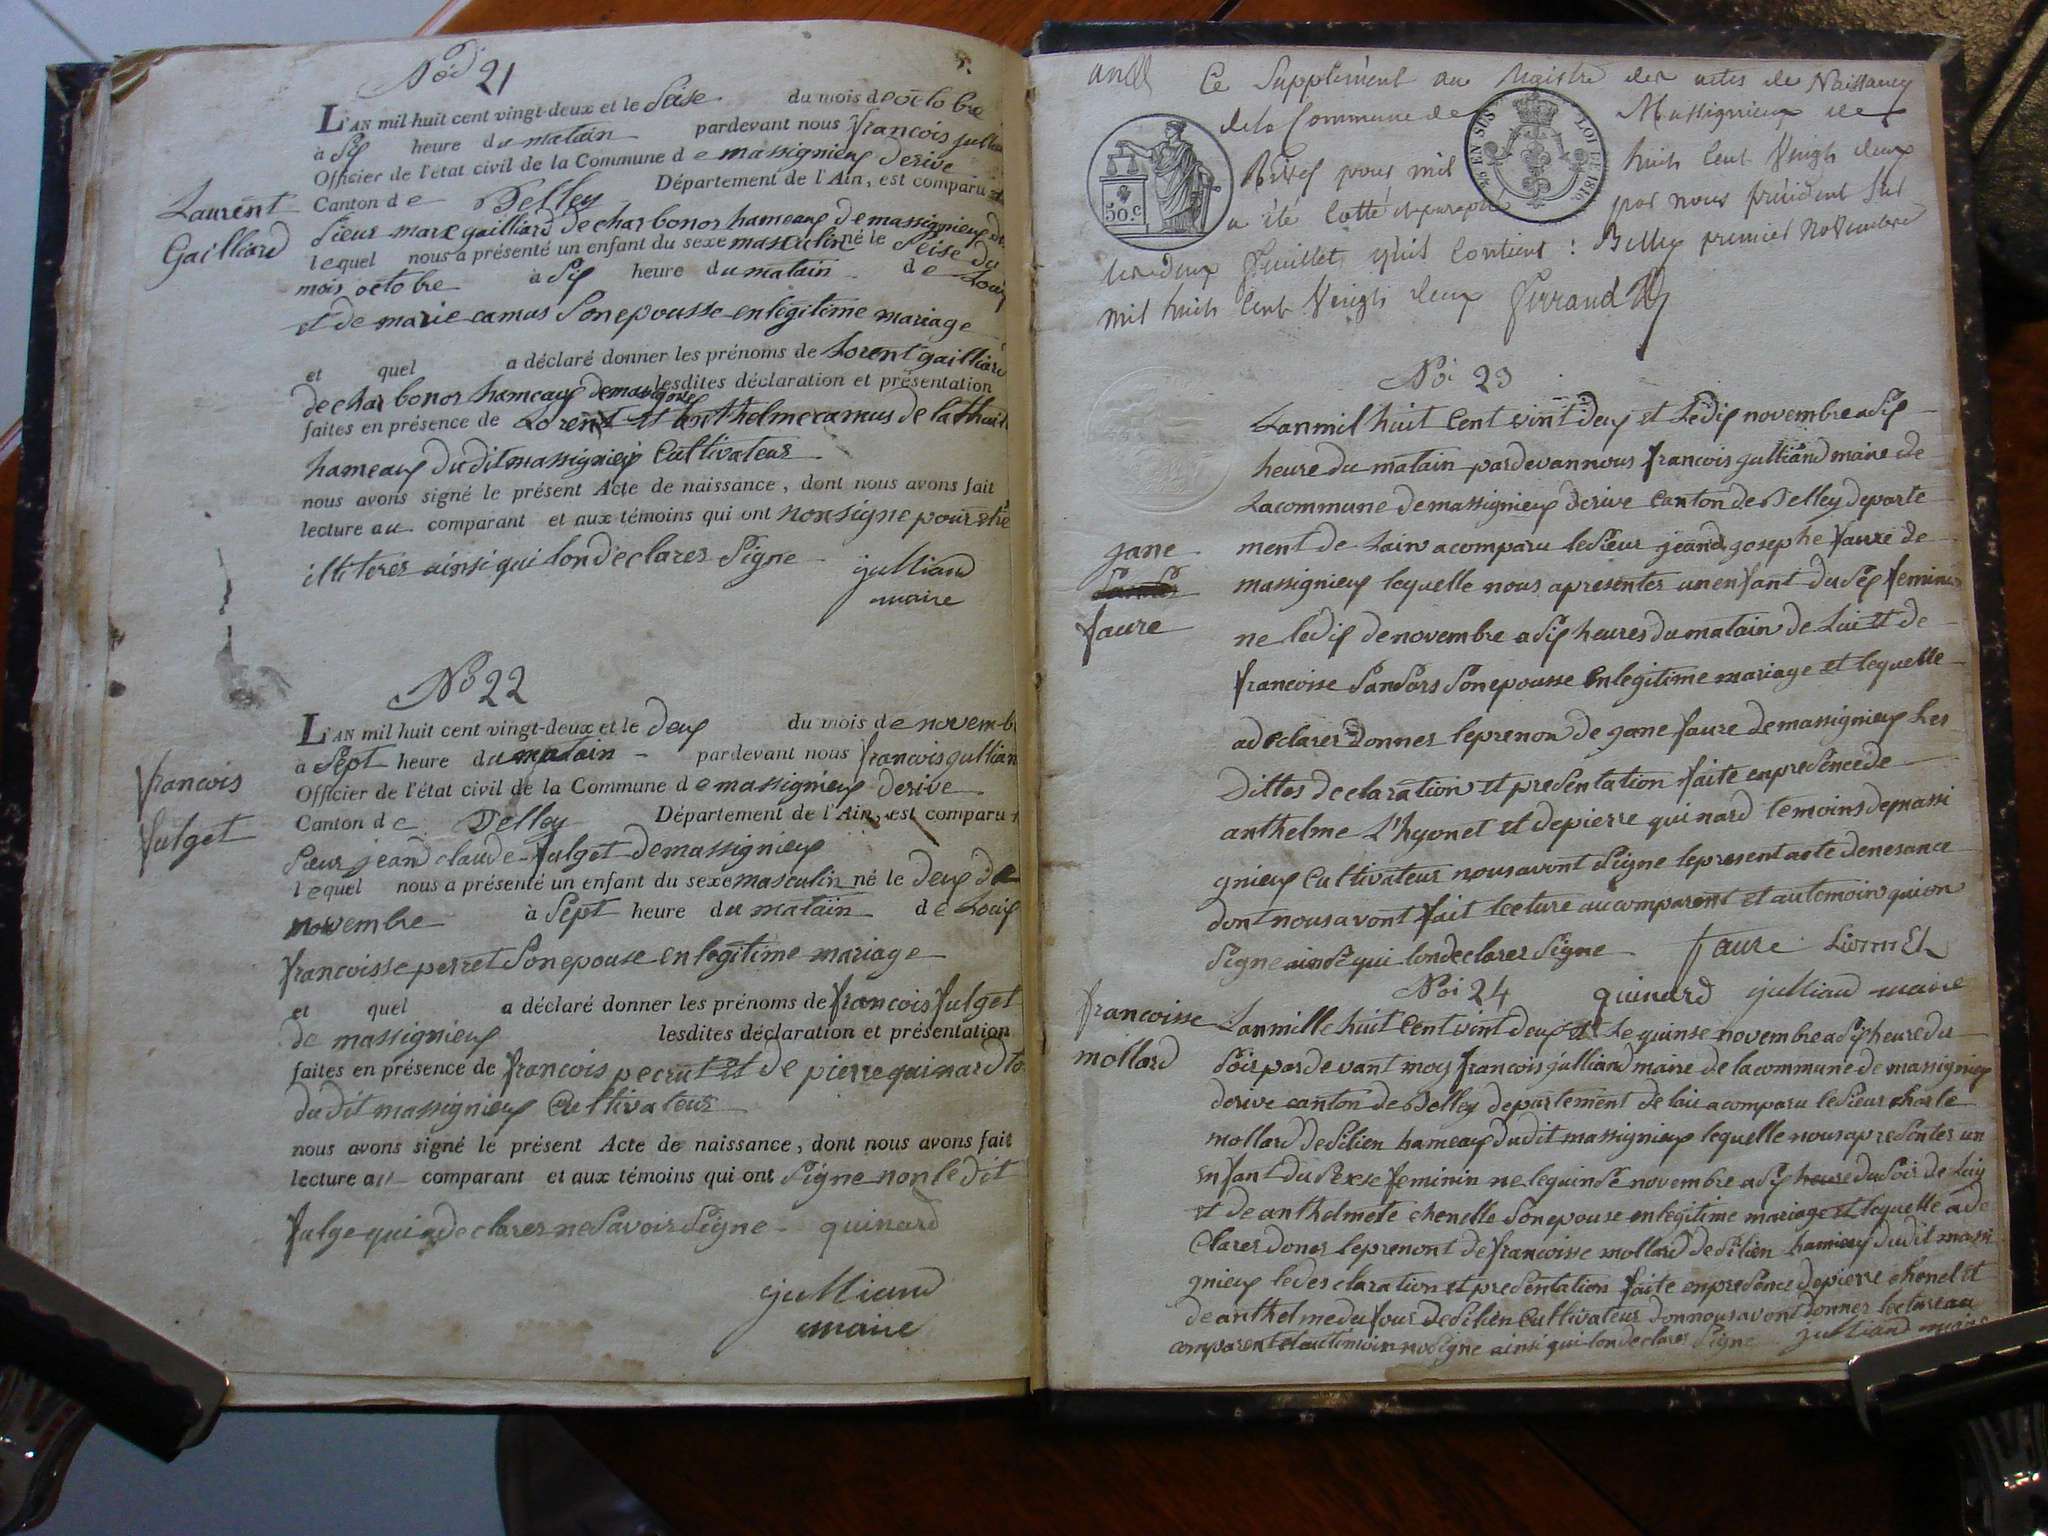 Noi 21
L'AN mil huit cent vingt-deux et le Seise du mois de octobre
à Six heure du matain pardevant nous francois jullian
Officier de l'état civil de la Commune de massignieux derive
Canton de Belley Département de l'Ain, est comparu
Laurent
Gailliard
Sieur marc gailliard de charbonor hameaux de massignieux
lequel nous a présenté un enfant du sexe masculin né le Seise du
mois octobre à Six heure du matain de Louis
et de marie camus Son epousse en legitime mariage
et quel a déclaré donner les prénoms de Lorent gailliard
de charbonor hameaux de massignieux lesdites déclaration et présentation
faites en présence de Lorent et Anthelme camus de lathuil
hameaux dudit massignieux Cultivateur
nous avons signé le présent Acte de naissance, dont nous avons fait
lecture au comparant et aux témoins qui ont non signe pour etre
illiterer ainsi qui lon declarer Signe
julliand
maire
No 22
L'AN mil huit cent vingt-deux et le deux du mois de novemb
à Sept heure du matain pardevant nous francois jullian
Officier de l'état civil de la Commune de massignieux derive
Canton de Belley Département de l'Ain, est comparu
francois
fulget
Sieur jean claude fulget de massignieux
lequel nous a présenté un enfant du sexe masculin né le deux de
novembre à Sept heure du matain de Louis
francoisse perret Son epouse en legitime mariage
et quel a déclaré donner les prénoms de francois fulget
de massignieux lesdites déclaration et présentation
faites en présence de francois pecrut et de pierre quinard to
dudit massignieux Cultivateur
nous avons signé le présent Acte de naissance, dont nous avons fait
lecture au comparant et aux témoins qui ont Signe non ledit
fulge qui a declarer ne Savoir Signe quinard
julliand
maire
Ce Supplément au Registre des actes de Naissances
de la Commune de Massignieux de
Rives pour mil huit Cent Vingt deux
a été Cotté et paraphé par nous président Sur
les deux feuillets qu'il Contient : Belley premier Novembre
mil huit Cent Vingt deux
50.C
Noi 23
Lanmil huit Cent vint deux et Ledix novembre a Six
heure du matain pardevan nous francois julliand maire de
La commune de massignieux derive Canton de Belley departe
ment de Lain a comparu le Sieur jean josephe faure de
gane
faure
massignieux lequelle nous a presenter un enfant du Sex femini
ne le dix de novembre a Six heures du matain de Lui et de
francoise Sansors Son epousse En legitime mariage et lequelle
a declarer donner le prenon de gane faure de massignieux Les
Dittes declaration et presentation faite en presence de
anthelme L'hyonet et de pierre quinard temoins de massi
gnieux Cultivateur nous avont Signe le present acte de nesance
dont nous avont fait lecture au comparent et au temoin qui on
Signe ainse qui lon declarer Signe faure Lionnet
Noi 24 quinard julliand maire
francoisse
mollard
Lan mille huit Cent vint deux et Le quinse novembre a Six heure du
Soir pardevant moy francois julliand maire de la commune de massignieux
derive canton de Belley departement de lain a comparu le Sieur charle
mollard de Silien hameaux dudit massignieux lequelle nous a presenter un
enfant du Sexse feminin ne le quinse novembre a Six heure du Soir de Luy
et de anthelmete chenelle Son epouse en legitime mariage et lequelle a de
Clarer doner le prenont de francoisse mollard de Silien hameaux dudit massi
gnieux les desclaration et presentation faite en presence de pierre chenel et
de anthelme dufour de Silien Cultivateur don nous avont donner lecture au
comparent et au temoin no Signe ainsi qui lon declarer Signe julliand maire